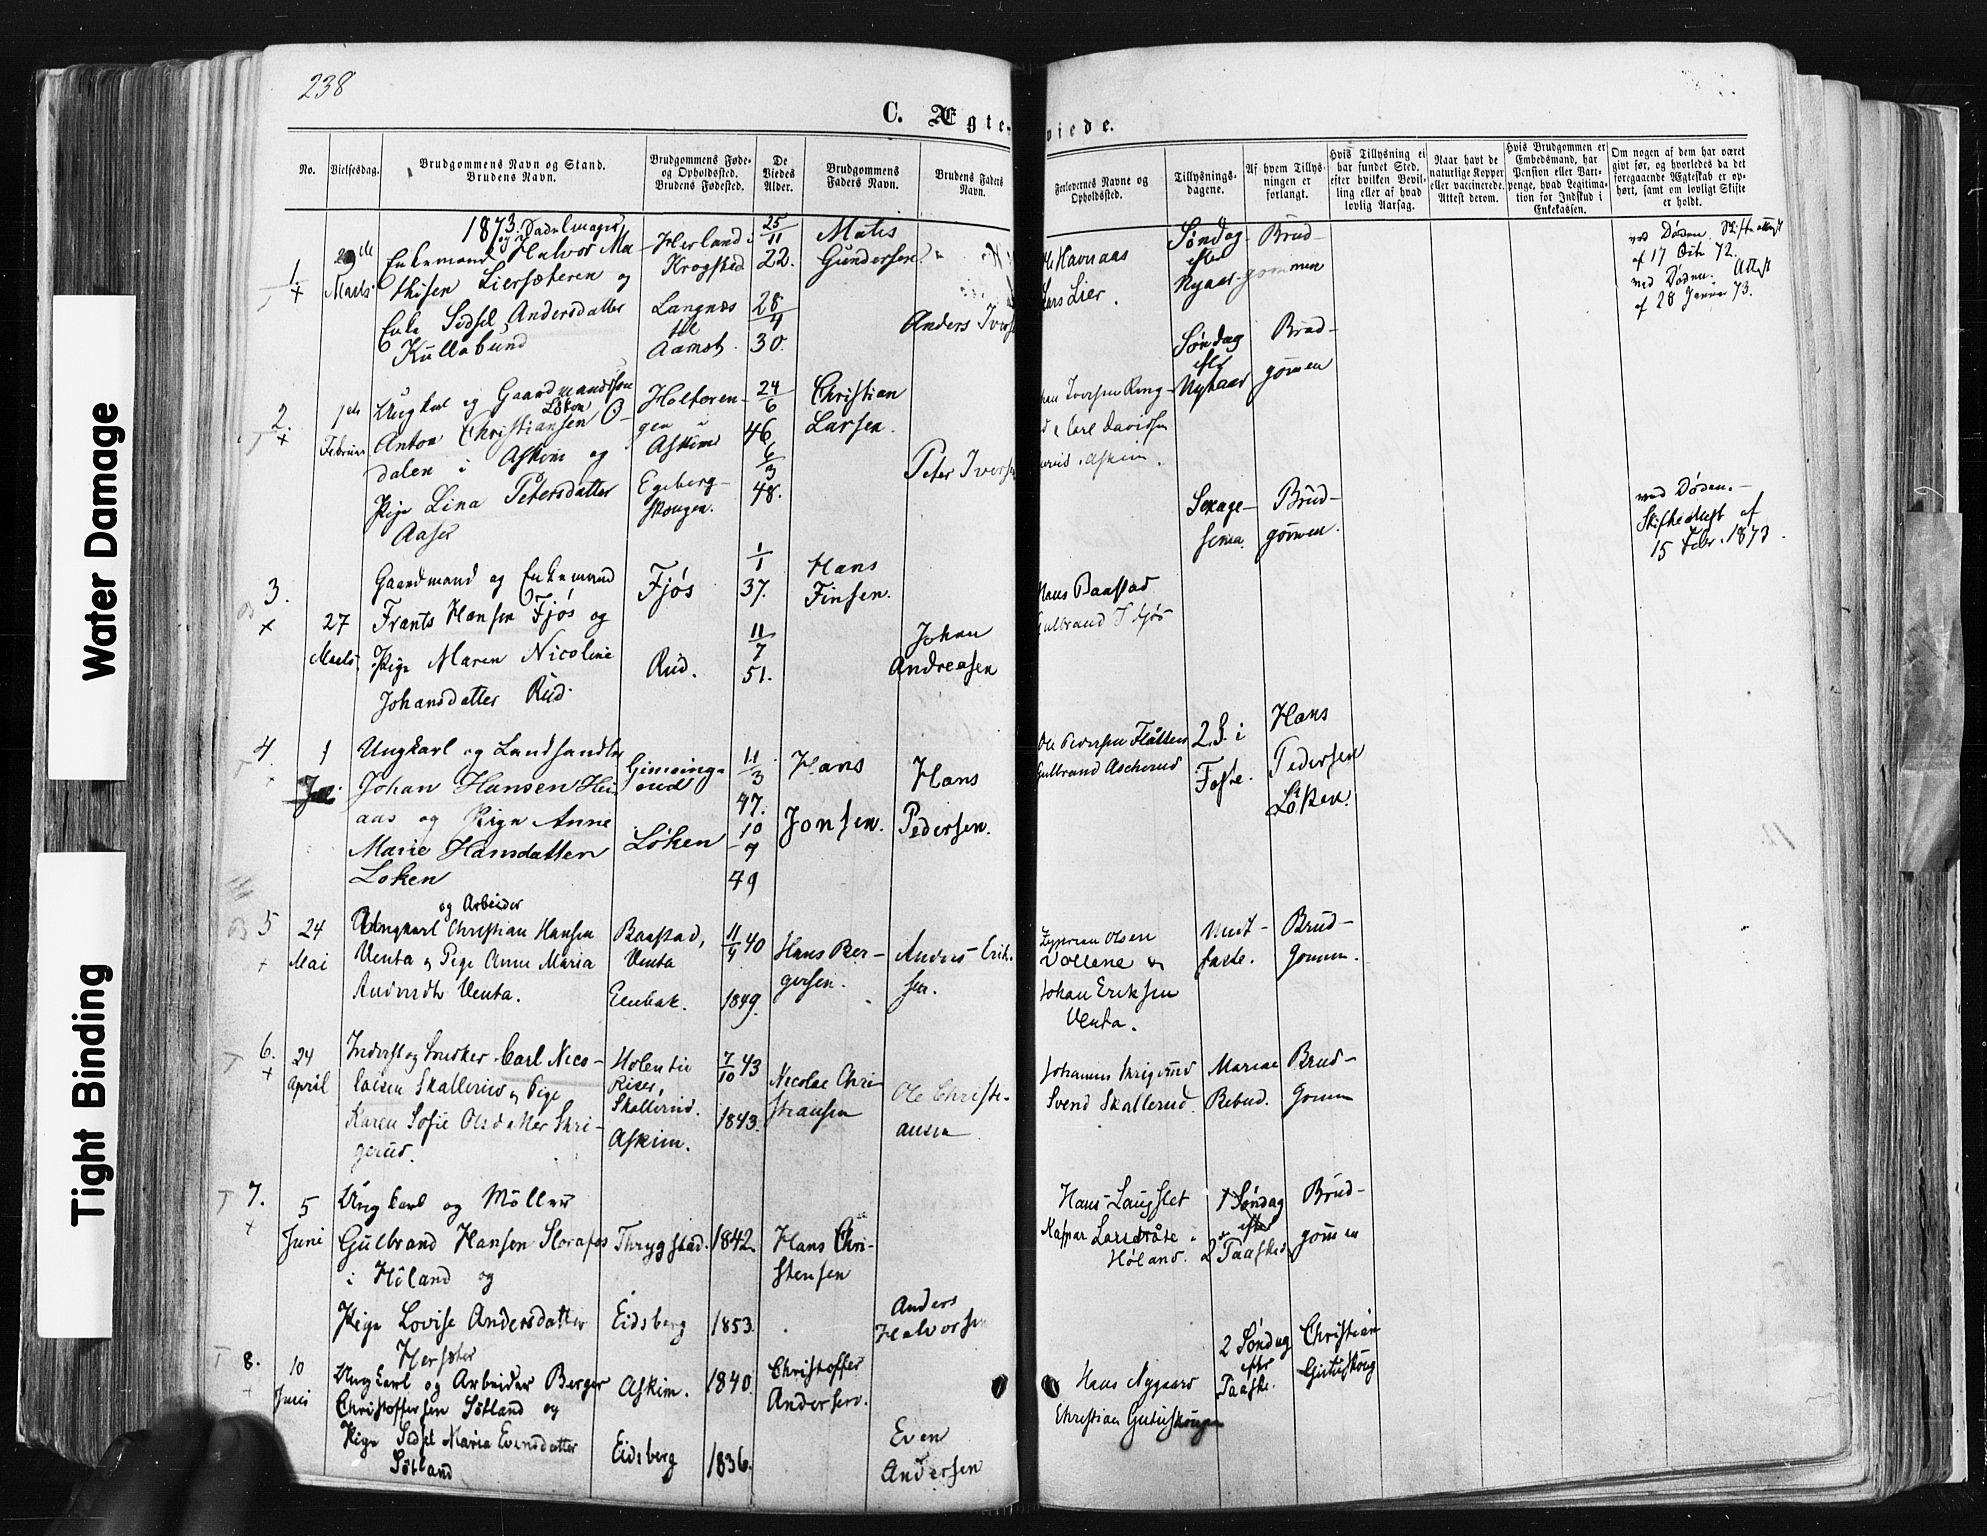 Water Damage
Tight Binding
238
C. Ægte-
viede.
No.
Vielsesdag.
Brudgommens Navn og Stand.
Brudens Navn.
Brudgommens Føde-
og Opholdssted.
Brudens Fødested.
De
Viedes
Alder.
Brudgommens
Faders Navn.
Brudens Faders
Navn.
Forlovernes Navne og
Opholdssted.
Tillysnings-
dagene.
Af hvem Tillys-
ningen er
forlangt.
Hvis Tillysning ei
har fundet Sted,
efter hvilken Bevil-
ling eller af hvad
lovlig Aarsag.
Naar havt de
naturlige Kopper
eller vaccinerede.
Attest derom.
Hvis Brudgommen er
Embedsmand, har
Pension eller Vart-
penge, hvad Legitima-
tion for Indskud i
Enkekassen.
Om nogen af dem har været
gift før, og hvorledes da det
foregaaende Ægteskab er op-
hørt, samt om lovligt Skifte
er holdt.
1873.
1.
Marts
Enkemand Halvor Ma-
thisen Liersæteren og
Enke Sidsel Andersdatter
Kullebund
Herland i
Krogstad
Langnæs
Aamot.
25/11
22.
28/4
30.
Matis
Gundersen
Anders Ivers
Havnaas
Lars Lier.
Søndag
efter
Nyaar
Brud-
gommen
ved Døden. Skifteattest
af 17 Octr 72.
ved Døden. Attest
af 28 Januar 73.
2.
1ste
Februar
Ungkarl og Gaardmandssøn
Løken
Anton Christiansen O-
dalen i Askim og
Pige Lina Petersdatter
Aaser
Holteren-
gen i
Askim
Egeberg-
skougen.
24/6
46
6/3
48.
Christian
Larsen.
Peter Ivers
Iversen Ring-
Carl Davidsen
Askim.
Søndag
efter
Nytaar
Brud-
gommen
3.
27
Marts.
Gaardmand og Enkemand
Frants Hansen Fjøs og
Pige Maren Nicoline
Johansdatter Rud.
Fjøs
Rud.
1/1
37.
11/7
51.
Hans
Finsen.
Johan
Andreasen
Hans Baastad
Gulbrand Fjøs
Sexage-
sima.
Brud-
gommen.
ved Døden.-
Skifteattest af
15 Febr. 1873.
4.
1
Ungkarl og Landhandler
Johan Hansen Hei
aas og Pige Anne
Marie Hansdatter
Løken
Gimsing-
rud
Løken
11/3
47.
10/9
49
Hans
Jonsen.
Hans
Pedersen.
Ole Pedersen Flåtten
Gulbrand Ascherud
2.S. i
Faste.
Hans
Pedersen
Løken.
5
24
Mai
og Arbeider
Ungkarl Christian Hansen
Venta og Pige Anne Maria
Andersdtr Venta.
Baastad,
Venta
Enebak.
11/4 40
1849.
Hans Ber-
gersen.
Anders Erik-
sen.
Zyprian Olsen
Vollene &
Johan Eriksen
Venta.
Midt-
faste.
Brud-
gommen.
6.
24
April
Inderst og Snedker Carl Nico-
laisen Skallerud og Pige
Karen Sofie Olsdatter Skri-
gerud.
Holentie
Riser,
Skallerud.
Askim.
7/10 43
1843.
Nicolai Chri-
stiansen
Ole Christi-
ansen
Johannes Skrigerud
Svend Skallerud.
Mariae
Bebud.
Brud-
gommen
7.
5
Juni
Ungkarl og Møller
Gulbrand Hansen Storafos
i Høland og
Pige Lovise Andersdatter
Hersæter
Thrygstad.
Eidsberg
1842.
1853.
Hans Chri-
stensen
Anders
Halvorsen
Hans Laugslet
Høland.
1 Søndag
efter
Paaske
Brud-
gommen
8.
10
Juni
Ungkarl og Arbeider Berger
Christoffersen Søtland og
Pige Sidsel Maria Evensdatter
Søtland
Askim.
Eidsberg
1840.
1836.
Christoffer
Andersen.
Even
Andersen
Hans Nygaard
Christian Gutuskougen
2 Søndag
efter
Paaske.
Christian
Gutuskoug